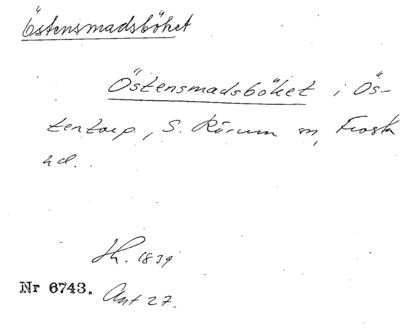 Östensmadsböket
Östensmadsböket i Ös-
tentorp, S. Rörum sn, Frosta
hd.
Sk. 1839
Nr 6743. Ant 27.